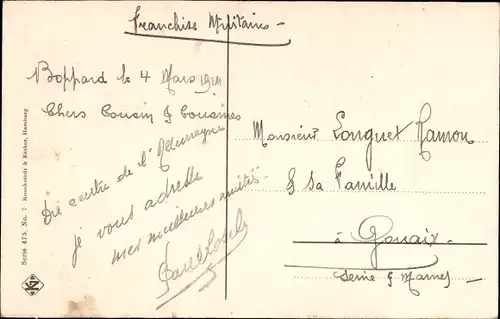 Franchise Militaire
Boppard le 4 Mars
Chers Cousin & Cousines
Du centre de l'Allemagne
je vous adresse
mes meilleures amitiés
Monsieur Longuet Ramon
& sa Famille
à Gouaix
Seine & Marne
Serie 475. No. 7 Knackstedt & Näther, Hamburg